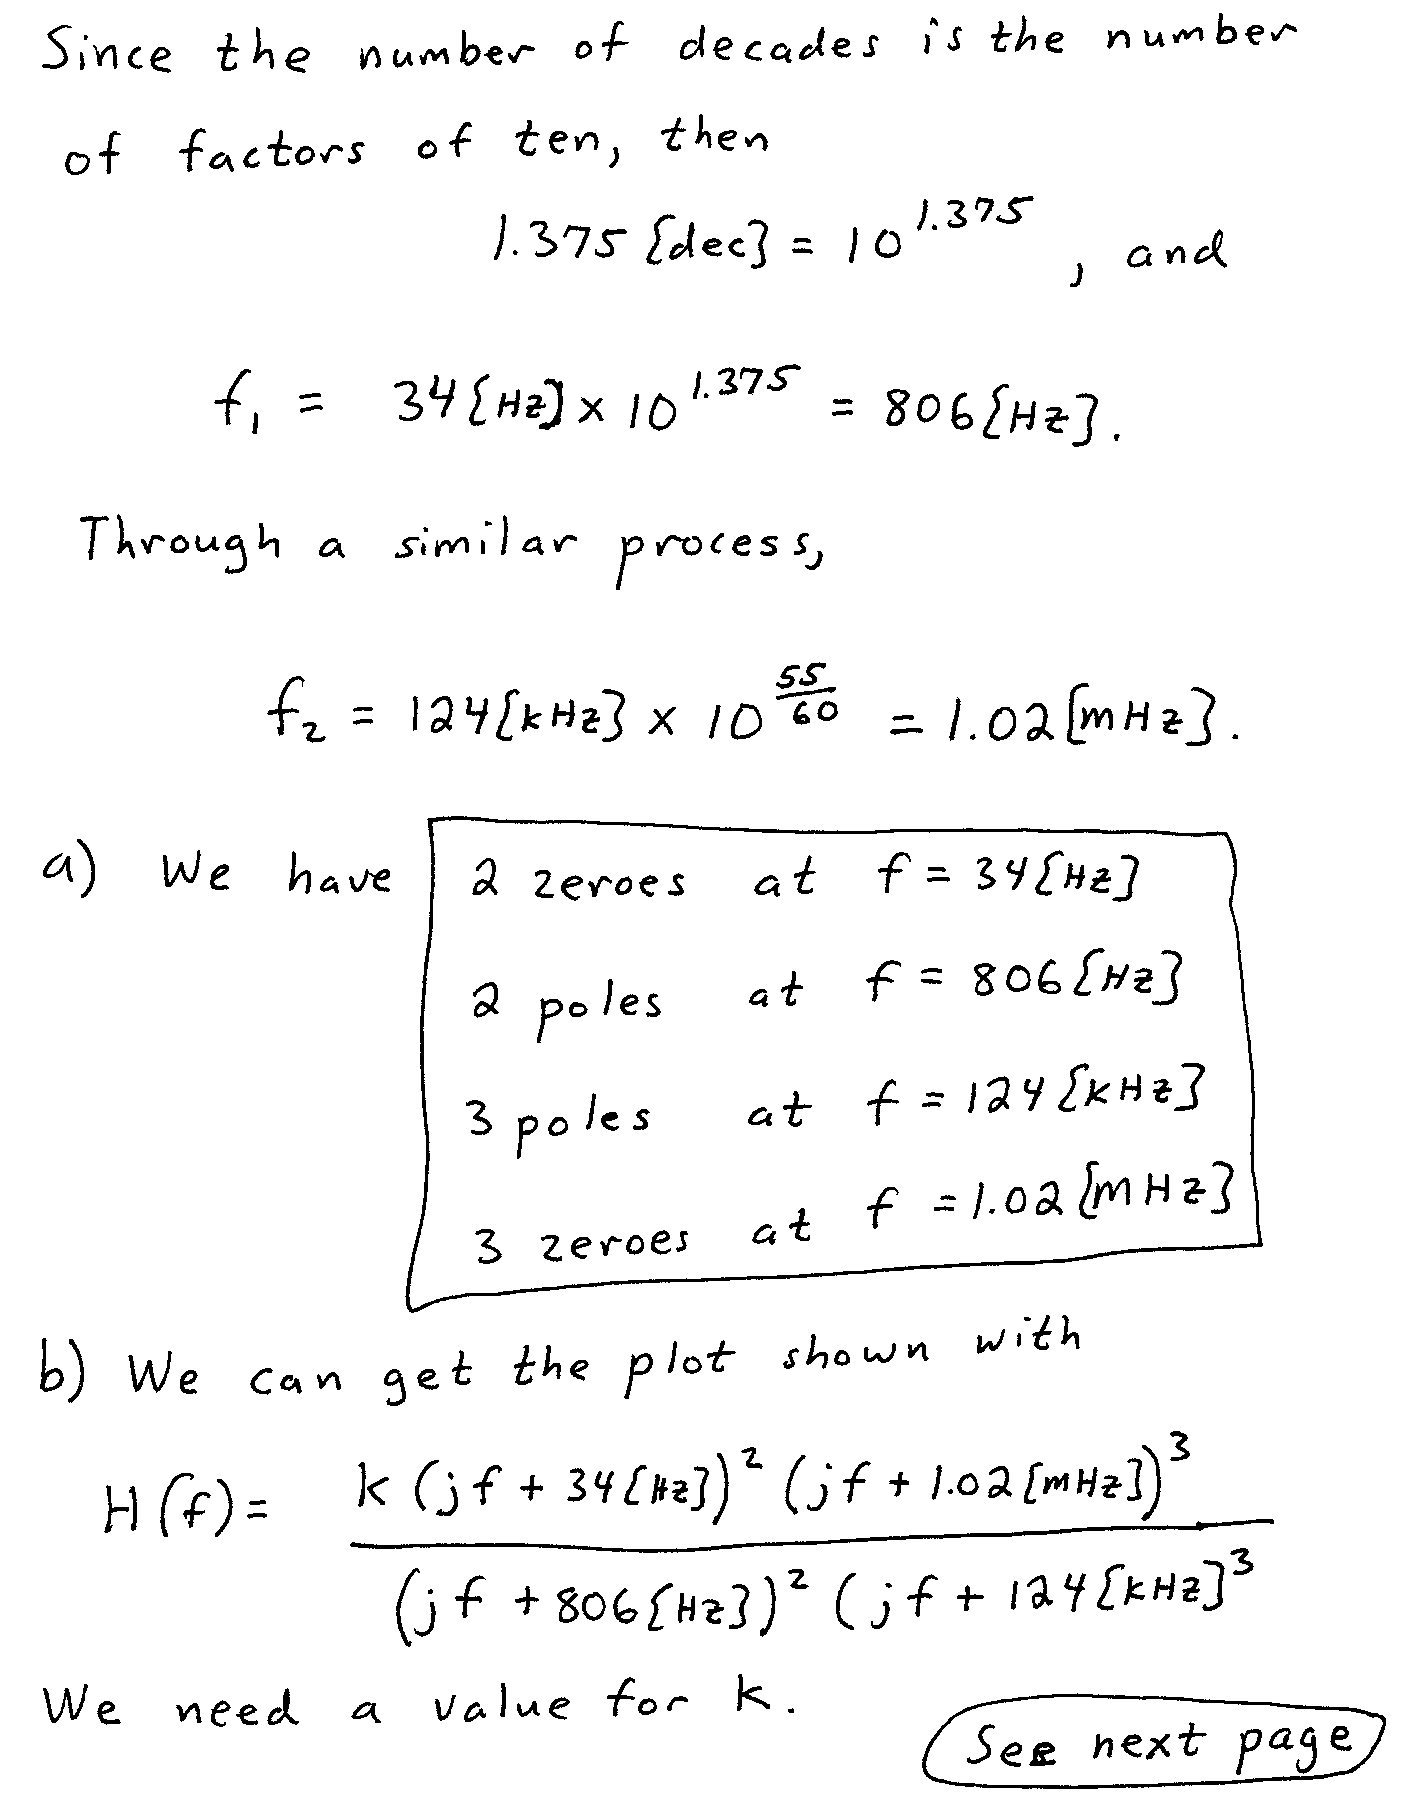 Since the number of decades is the number
of factors of ten, then
1.375 [dec] = 10^1.375, and
f₁ = 34[Hz] × 10^1.375 = 806[Hz].
Through a similar process,
f₂ = 124[kHz] × 10^(55/60) = 1.02[mHz].
a) We have 2 zeroes at f = 34[Hz]
2 poles at f = 806[Hz]
3 poles at f = 124[kHz]
3 zeroes at f = 1.02[mHz]
b) We can get the plot shown with
H(f) = k(jf + 34[Hz])² (jf + 1.02[mHz])³
(jf + 806[Hz])² (jf + 124[kHz]³
We need a value for k.
See next page